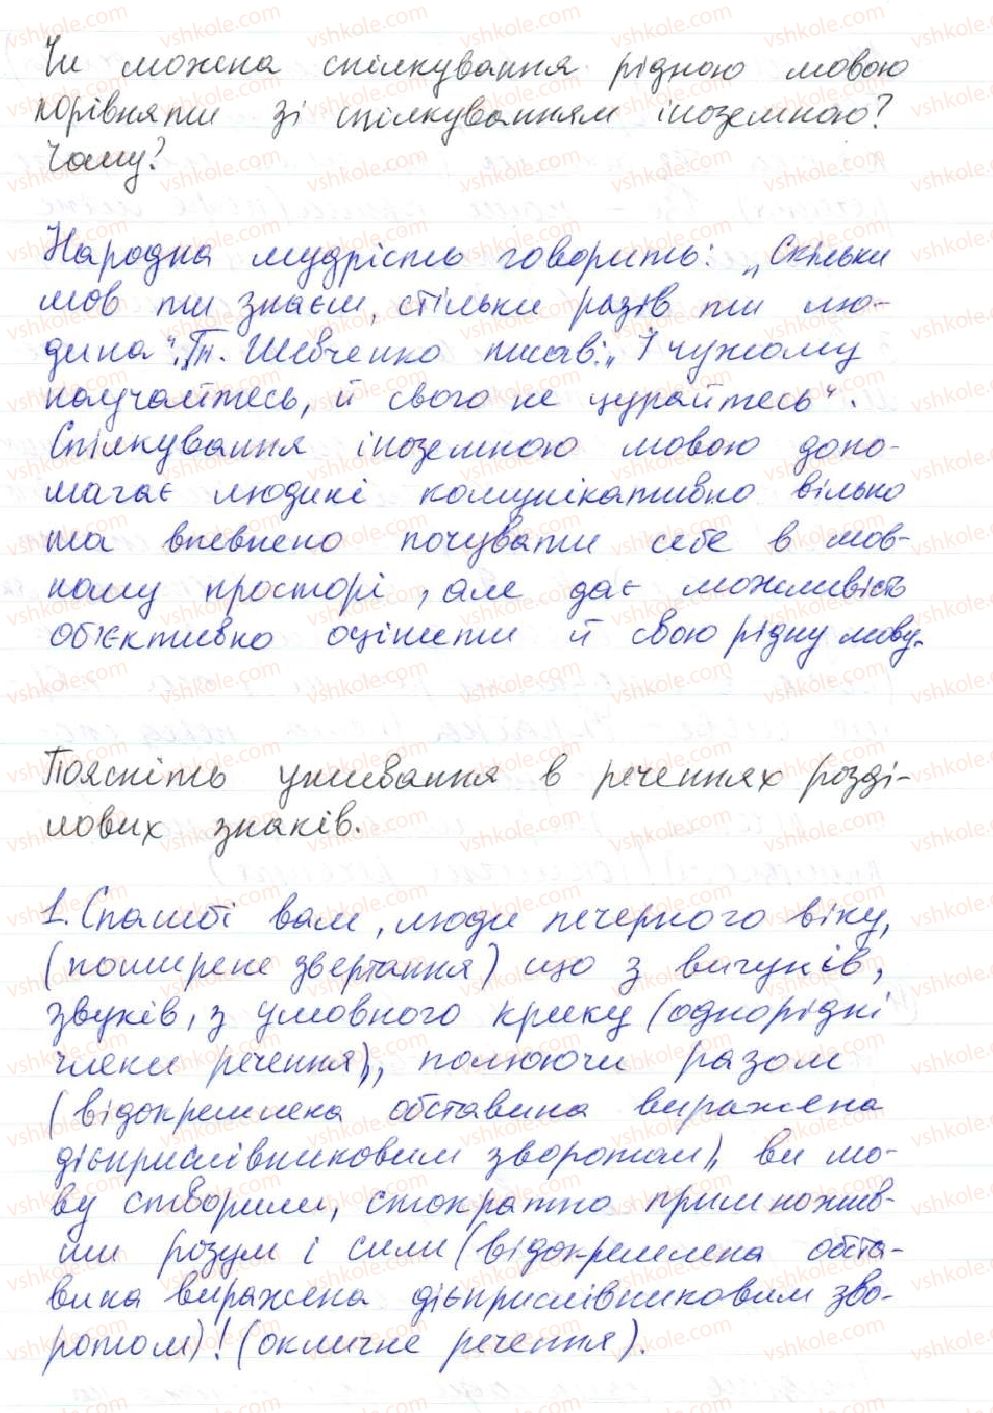 Чи можна спілкування рідною мовою
порівняти зі спілкуванням іноземною?
Чому?
Народна мудрість говорить: „Скільки
мов ти знаєш, стільки разів ти лю-
дина“, Т. Шевченко писав: „І чужому
научайтесь, й свого не цурайтесь“.
Спілкування іноземною мовою допо-
магає людині комунікативно вільно
та впевнено почувати себе в мов-
ному просторі, але дає можливість
об'єктивно оцінити й свою рідну мову.
Поясніть уживання в реченнях розді-
лових знаків.
1. Спасибі вам, люди печерного віку,
(поширене звертання) що з вигуків,
звуків, з умовного крику (однорідні
члени речення), полюючи разом
(відокремлена обставина виражена
дієприслівниковим зворотом), ви мо-
ву створили, стократно примножив-
ши розум і сили (відокремлена обста-
вина виражена дієприслівниковим зво-
ротом)! (окличне речення).